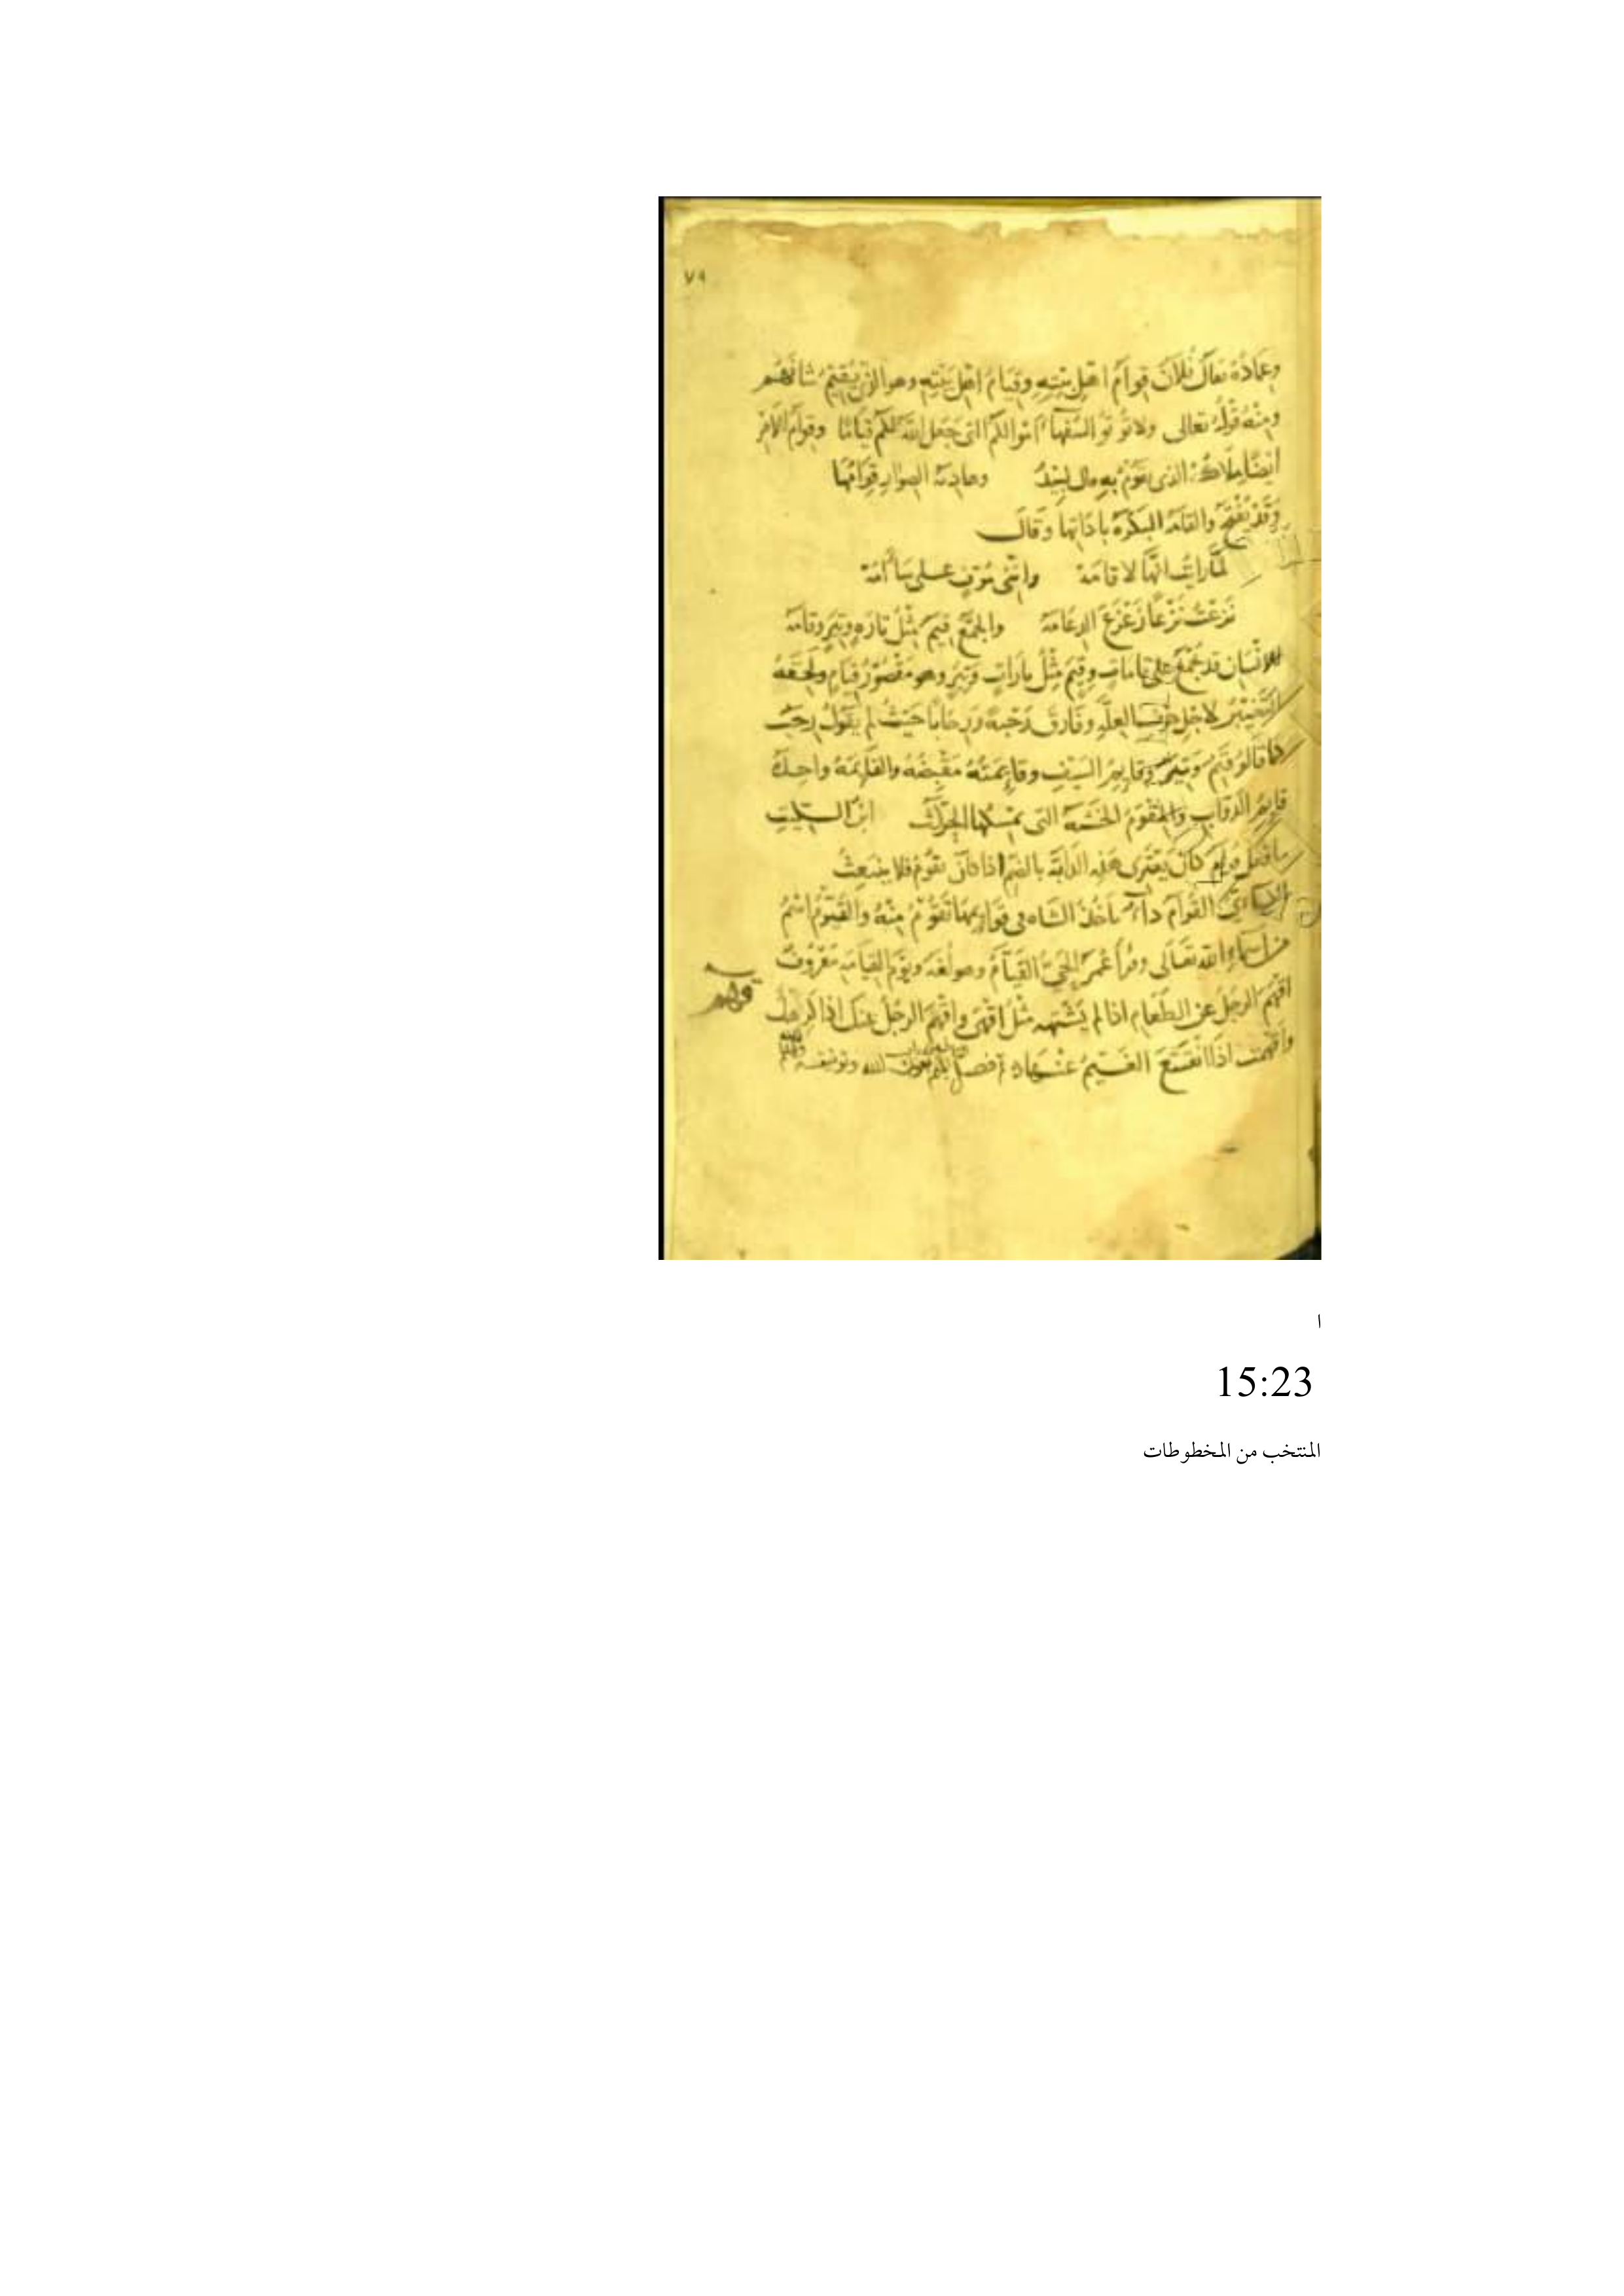 ٧٩
وعمادُهُ يقال فُلانٌ قِوامُ اهْلِ بيْتِهِ وقيامُ اهْلِ بَيْتِهِ وهو الذي يُقيْمُ شانَهُم
ومنْهُ قَوْلُهُ تعالى ولا تُوتُوا السُّفَهآءَ امْوالكُمُ التي جَعَلَ اللهُ لكُم قيامًا وقِوامُ الامْرِ
ايضًا مِلاكُهُ الذي يَقُوْمُ بِهِ قال لبيْدُ وهاديَةُ الصِوارِ قِوَامُهَا
وقَدْ يُفْتَحُ والقامَةُ البَكْرةُ باداتها وقالَ
لمَّا رايْتُ انَّها لا قامَهْ وانَّنى مُوْفٍ على سَآمَهْ
نَزَعْتُ نَزْعًا زَعْزَعَ الدِعَامَهْ والجمْعُ قِيَمٌ مِثْلُ تارَةٍ وتِيَرٍ وقامَةُ
الانْسَانِ قد تُجْمَعُ على قاماتٍ وقِيَمٍ مِثْلُ تاراتٍ وتِيَرٍ وهو مَقْصُوْرُ قيَامٍ ولَحِقَهُ
التَّغْييْرُ لاجْلِ حَرْفِ العِلَّةِ وفَارَقَ رَحَبةً ورِحَابًا حَيْثُ لم يَقُولُوا رِحَبٌ
كما قالُوا قِيَمٌ وتِيَرٌ وقايمُ السَيْفِ وقايمتُهُ مَقْبِضُهُ والقايمَةُ واحِدَةُ
قوايمِ الدَوابِ والمِقْوَمُ الخَشَبَةُ التي يُمْسِكُها الحَرَّاثُ ابنُ السِكّيتِ
ما فعَلَ قُوَامٌ كانَ يَعْتَرى هذِهِ الدَّابَّةَ بالضَمِّ اذا كانَ يَقُوْمُ فلا يَنْبَعِثُ
الكِسَائيُّ القُوَامُ دآءٌ ياخُذُ الشَاةَ في قوايمها تَقُوْمُ مِنْهُ والقَيُّوْمُ اسْمٌ
من اسْماءِ اللهِ تَعَالى وقرَأ عُمَرُ الحَيُّ القَيَّامُ وهو لُغَةٌ ويَوْمُ القيامَةِ مَعْرُوفٌ
قهم
اقْهَمَ الرَجُلُ عنِ الطَعَامِ اذا لم يَشْتَهِهِ مثْلُ اقْهَى واقْهَمَ الرَجُلُ عَنكَ اذا كَرِهَكَ
واقْهَمَتِ اذا انْقَشَعَ الغَيْمُ عَنْهَا فصل بعون الله وتوفيقه
ا
15:23
المنتخب من المخطوطات